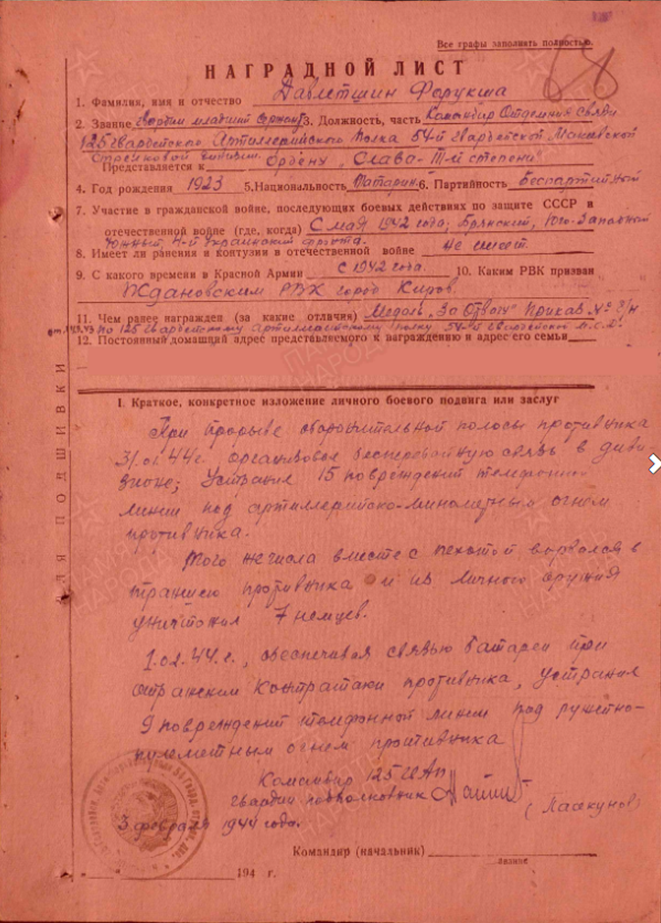 Все графы заполнять полностью.
68
НАГРАДНОЙ ЛИСТ
1. Фамилия, имя и отчество Давлетшин Форукша
2. Звание гвардии младший сержант 3. Должность, часть Командир Отделения связи
125 гвардейского Артиллерийского Полка 54-й гвардейской Макеевской
Стрелковой дивизии.
Представляется к Ордену "Слава" III-й степени
4. Год рождения 1923 5. Национальность Татарин. 6. Партийность Беспартийный
7. Участие в гражданской войне, последующих боевых действиях по защите СССР и
отечественной войне (где, когда) С мая 1942 года; Брянский, Юго-Западной
Южный, 4-й Украинский фронта.
8. Имеет ли ранения и контузии в отечественной войне не имеет.
9. С какого времени в Красной Армии с 1942 года. 10. Каким РВК призван
Ждановским РВК город Киров.
11. Чем ранее награжден (за какие отличия) Медаль "За Отвагу" Приказ № б/н
по 125 гвардейскому артиллерийскому полку 54-й гвардейской М.С.Д.
12. Постоянный домашний адрес представляемого к награждению и адрес его семьи
ДЛЯ ПОДШИВКИ
I. Краткое, конкретное изложение личного боевого подвига или заслуг
При прорыве оборонительной полосы противника
31.01.44 г. организовал бесперебойную связь в диви-
зионе; Устранил 15 повреждений телефонной
линии под артиллерийско-минометным огнем
противника.
Того же числа вместе с пехотой ворвался в
траншею противника и из личного оружия
уничтожил 7 немцев.
1.02.44 г., обеспечивая связью батареи при
отражении контратаки противника, устранил
9 повреждений телефонной линии под ружейно-
пулеметным огнем противника
Командир 125 ГвАП
гвардии подполковник (Пасекунов)
3 февраля 1944 года.
Командир (начальник)
звание
194 г.
ПАМЯТЬ НАРОДА